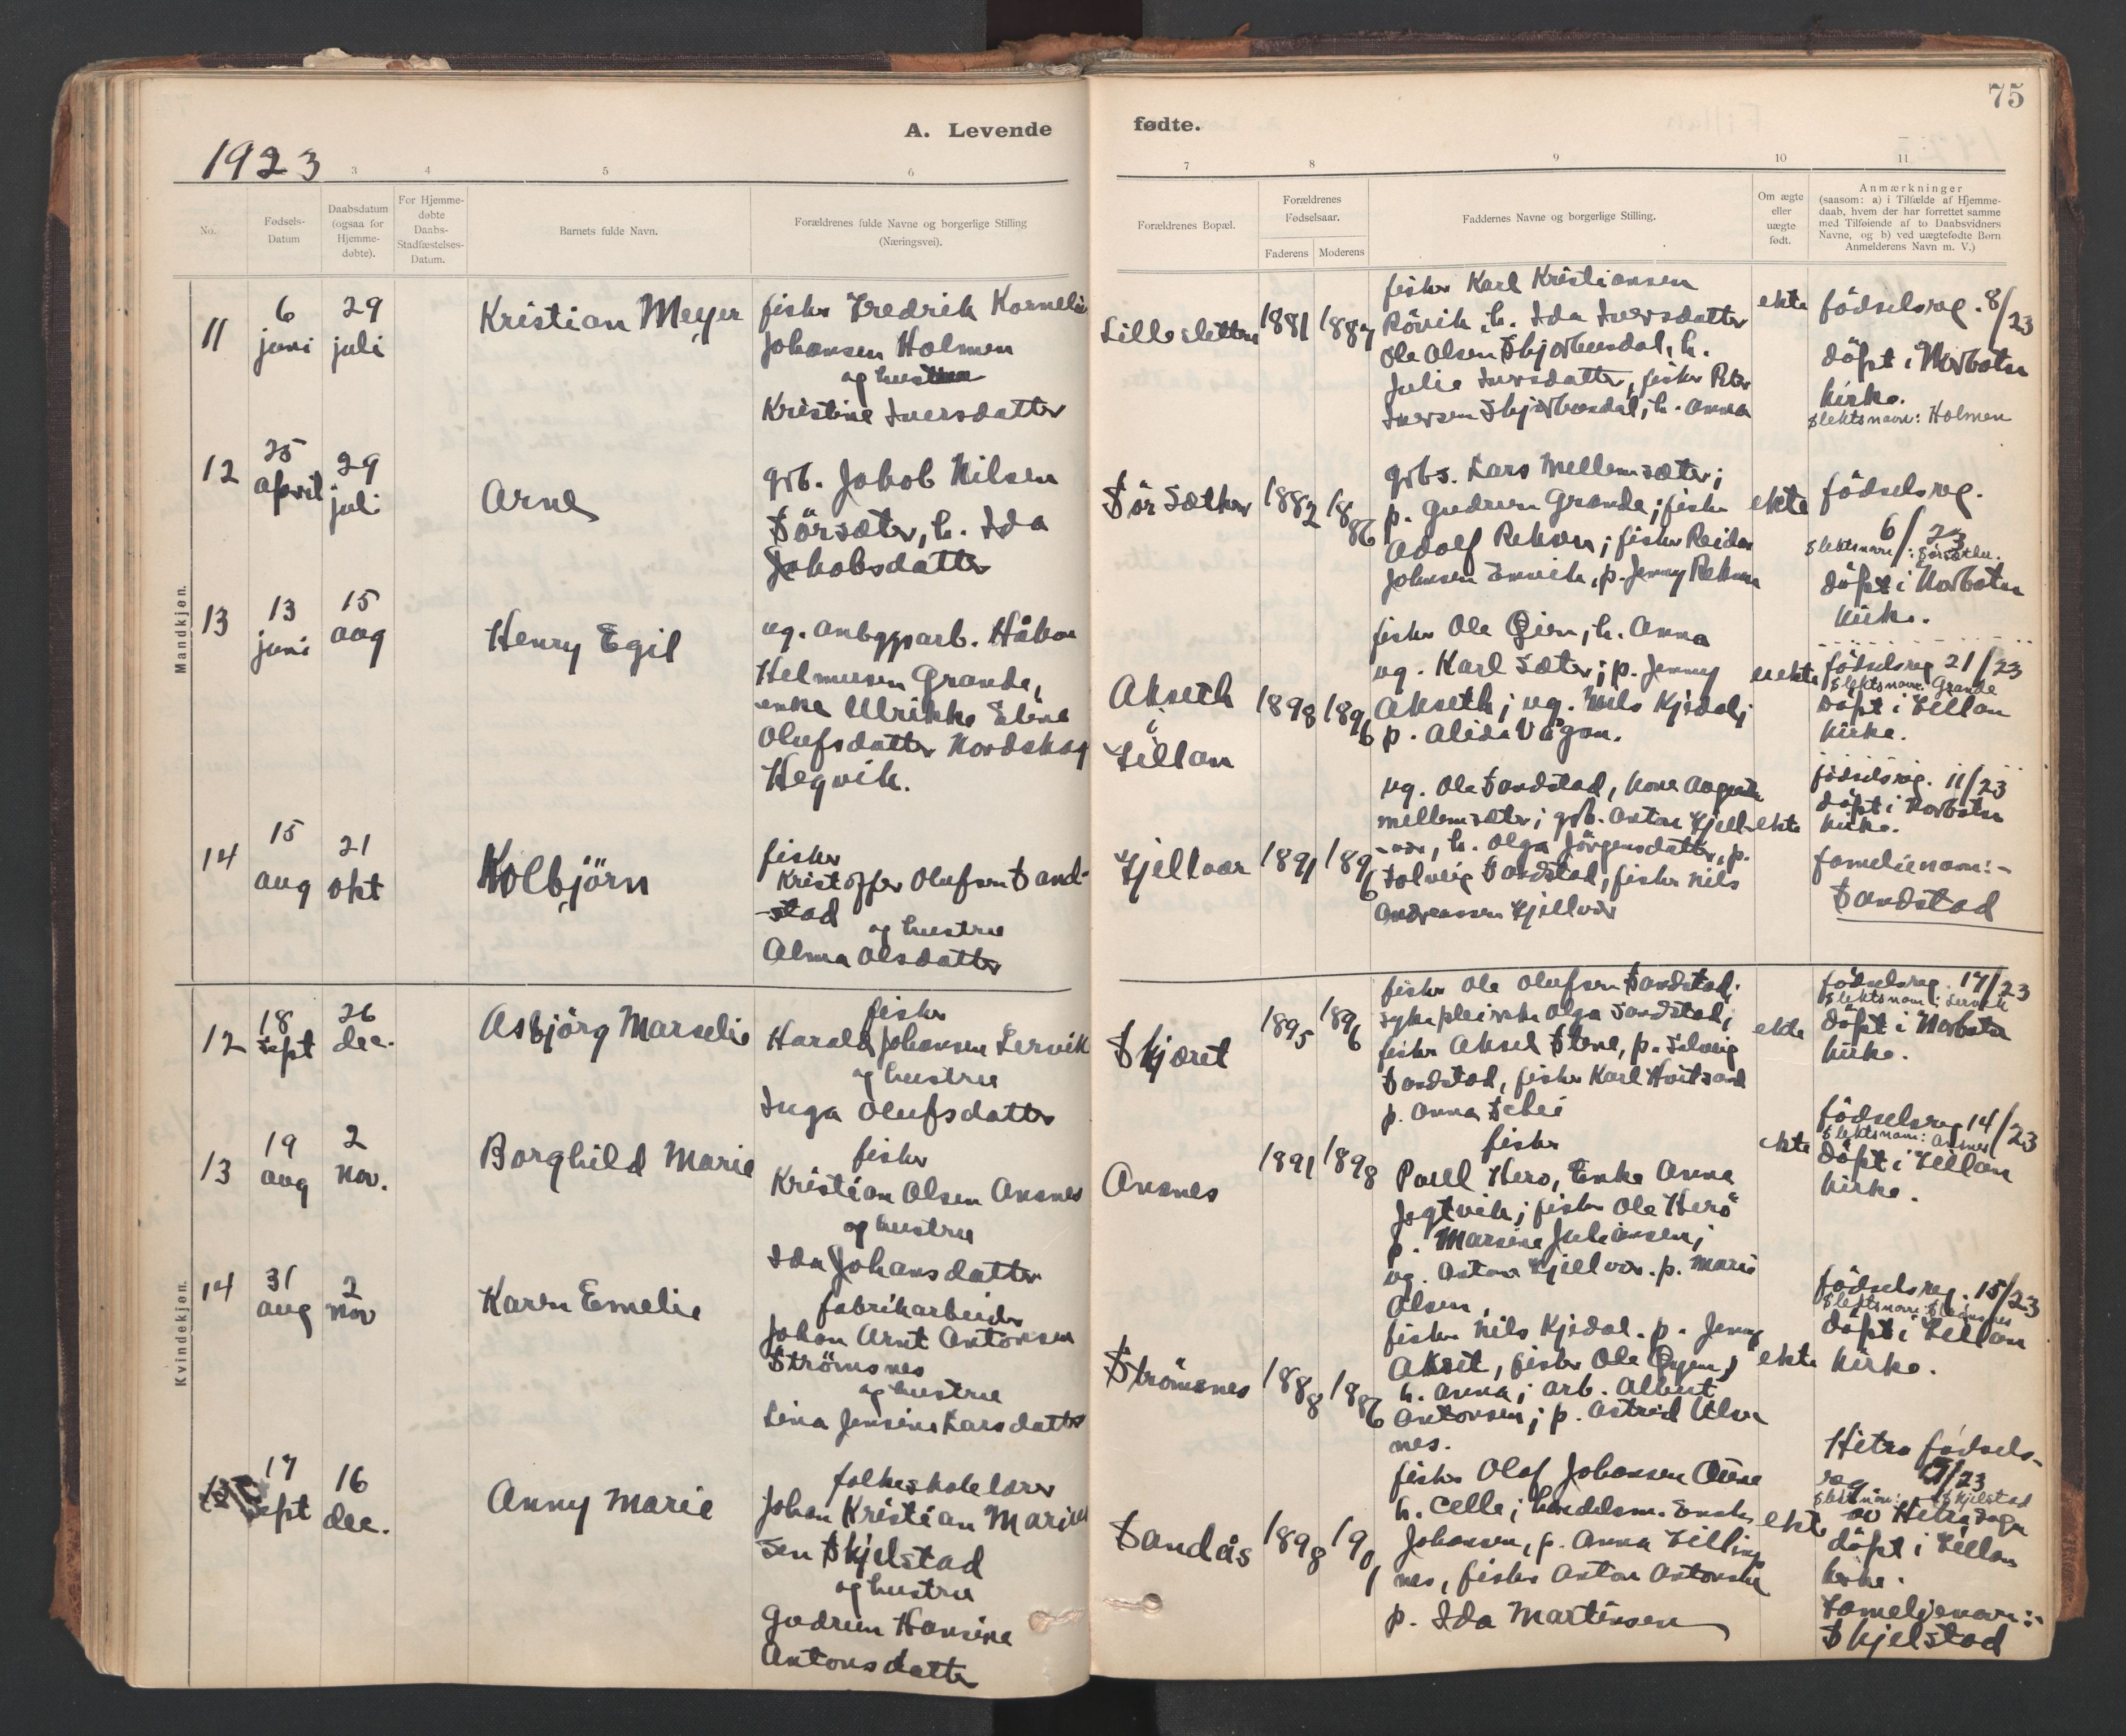 75
A. Levende
fødte.
1923
3
4
5
6
7
8
9
10
11
No.
Fødsels-
Datum
Daabsdatum
(ogsaa for
Hjemme-
døbte).
For Hjemme-
døbte
Daabs-
Stadfæstelses-
Datum.
Barnets fulde Navn.
Forældrenes fulde Navne og borgerlige Stilling
(Næringsvei).
Forældrenes Bopæl.
Forældrenes
Fødselsaar.
Faderens
Moderens
Faddernes Navne og borgerlige Stilling.
Om ægte
eller
uægte
født.
Anmærkninger
(saasom: a) i Tilfælde af Hjemme-
daab, hvem der har forrettet samme
med Tilføiende af to Daabsvidners
Navne, og b) ved uægtefødte Børn
Anmelderens Navn m. V.)
Mandkjøn.
11
6
juni
29
juli
Kristian Meyer
fisker Fredrik Kornelius
Johansen Holmen
og hustru
Kristine Iversdatter
Lillesletten
1881
1887
fisker Karl Kristiansen
Rövik, h. Ida Iversdatter
Ole Olsen Skjorbusdal, h.
Julie Iversdatter, fisker Peter
Iversen Skjorbusdal, h. Anna
ekte
födselsreg. 8/23
döpt i Norbotn
kirke.
Slektsnavn: Holmen
12
25
april
29
juli
Arne
grb. Jakob Nilsen
Sörsæter, h. Ida
Jakobsdatter
Sör Sæther
1882
1886
grbs. Lars Mellemsæter;
p. Gudrun Grande; fisker
Adolf Reksen; fisker Reidar
Johnsen Ervik, p. Jenny Reksen
ekte
födselsreg.
6/23
Slektsnavn: Sörsæther.
döpt i Norbotn
kirke.
13
13
juni
15
aug
Henry Egil
ug. anleggsarb. Håkon
Helmersen Grande,
enke Ulrikke Eline
Olufsdatter Nordskag
Hegvik.
Akseth
i
Fillan
1898
1896
fisker Ole Öien, h. Anna
ug. Karl Sæter; p. Jenny
Akseth; ug. Nils Kjedal;
p. Alida Vågan.
uekte
födselsreg 21/23
Slektsnavn: Grande
döpt i Fillan
kirke.
14
15
aug
21
okt
Kolbjörn
fisker
Kristoffer Olufsen Sand-
stad
og hustru
Alma Olsdatter
Fjellvær
1891
1896
ug. Ole Sandstad, kone Augusta
Mellemsæter; grb. Anton Fjell-
vær, h. Olga Jörgensdatter, p.
Solveig Sandstad, fisker Nils
Andreassen Fjellvær
ekte
födselsreg. 11/23
döpt i Norbotn
kirke.
familienavn:-
Sandstad
Kvindekjøn.
12
18
sept
26
dec.
Asbjörg Marselie
fisker
Harald Johansen Lervik
og hustru
Inga Olufsdatter
Skjæret
1895
1896
fisker Ole Olufsen Sandstad;
sykepleierske Olga Sandstad;
fisker Aksel Stene, p. Solveig
Sandstad, fisker Karl Hvitsand
p. Anna Selei
ekte
födselsreg. 17/23
Slektsnavn: Lervik
döpt i Norbotn
kirke.
13
19
aug
2
nov.
Borghild Marie
fisker
Kristian Olsen Ansnes
og hustru
Ida Johansdatter
Ansnes
1891
1898
fisker
Paul Herö, Enke Anna
Jegtvik; fisker Ole Herö
p. Marsine Juliansen;
ug. Anton Fjellvær. p. Marie
Olsen,
ekte
födselsreg 14/23
Slektsnavn: Ansnes
döpt i Fillan
kirke.
14
31
aug
2
nov
Karen Emelie
fabrikarbeider
Johan Arnt Antonsen
Strömsnes
og hustru
Lina Jensine Larsdatter
Strömsnes
1888
1886
fisker Nils Kjedal. p. Jenny
Akset, fisker Ole Öyen,
h. Anna; arb. Albert
Antonsen; p. Astrid Ulsn
nes.
ekte
födselsreg. 15/23
döpt i Fillan
kirke.
17
sept
16
dec.
Anny Marie
folkeskolelærer
Johan Kristian Marius
sen Skjelstad
og hustru
Gudrun Hansine
Antonsdatter
Sandås
1898
1901
fisker Olaf Johansen Aune
h. Celle; handelsm.
Johansen, p. Anna Fillings
nes, fisker Anton Antonsen
p. Ida Martinsen
ekte
Hitra födsels-
reg 7/23
Slektsnavn: Skjelstad
döpt i Fillan
kirke.
Familjenavn:-
Skjelstad